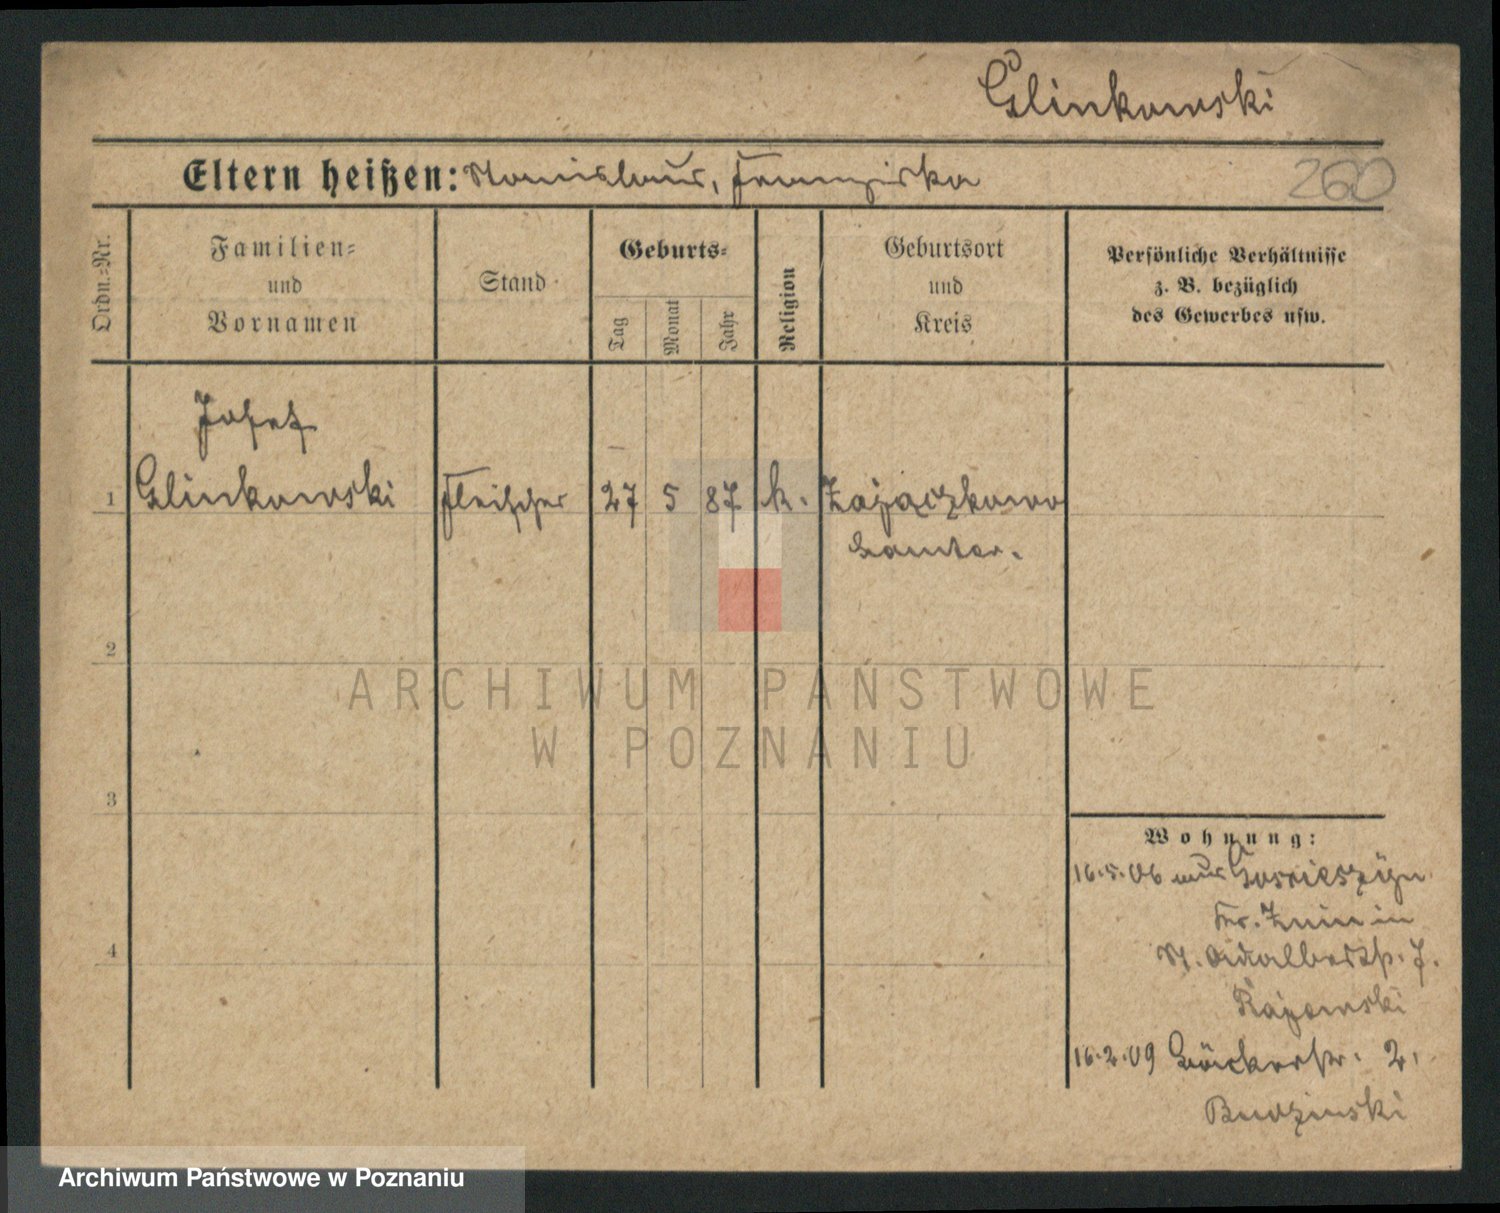 Glinkowski
Eltern heißen: Stanislaus, Franziska
260
Ordn.-Nr.
Familien-
und
Vornamen
Stand
Geburts-
Tag
Monat
Jahr
Religion
Geburtsort
und
Kreis
Persönliche Verhältnisse
z. B. bezüglich
des Gewerbes usw.
Josef
1 Glinkowski Fleischer 27 5 87 k. Zajączkowo
Samter.
2
3
4
Wohnung:
16.5.06 aus
Kr. Znin in
St. Adalbertstr. 7.
Rajewski
16.2.09 Bäckerstr. 2.
Budzinski
ARCHIWUM PAŃSTWOWE
W POZNANIU
Archiwum Państwowe w Poznaniu